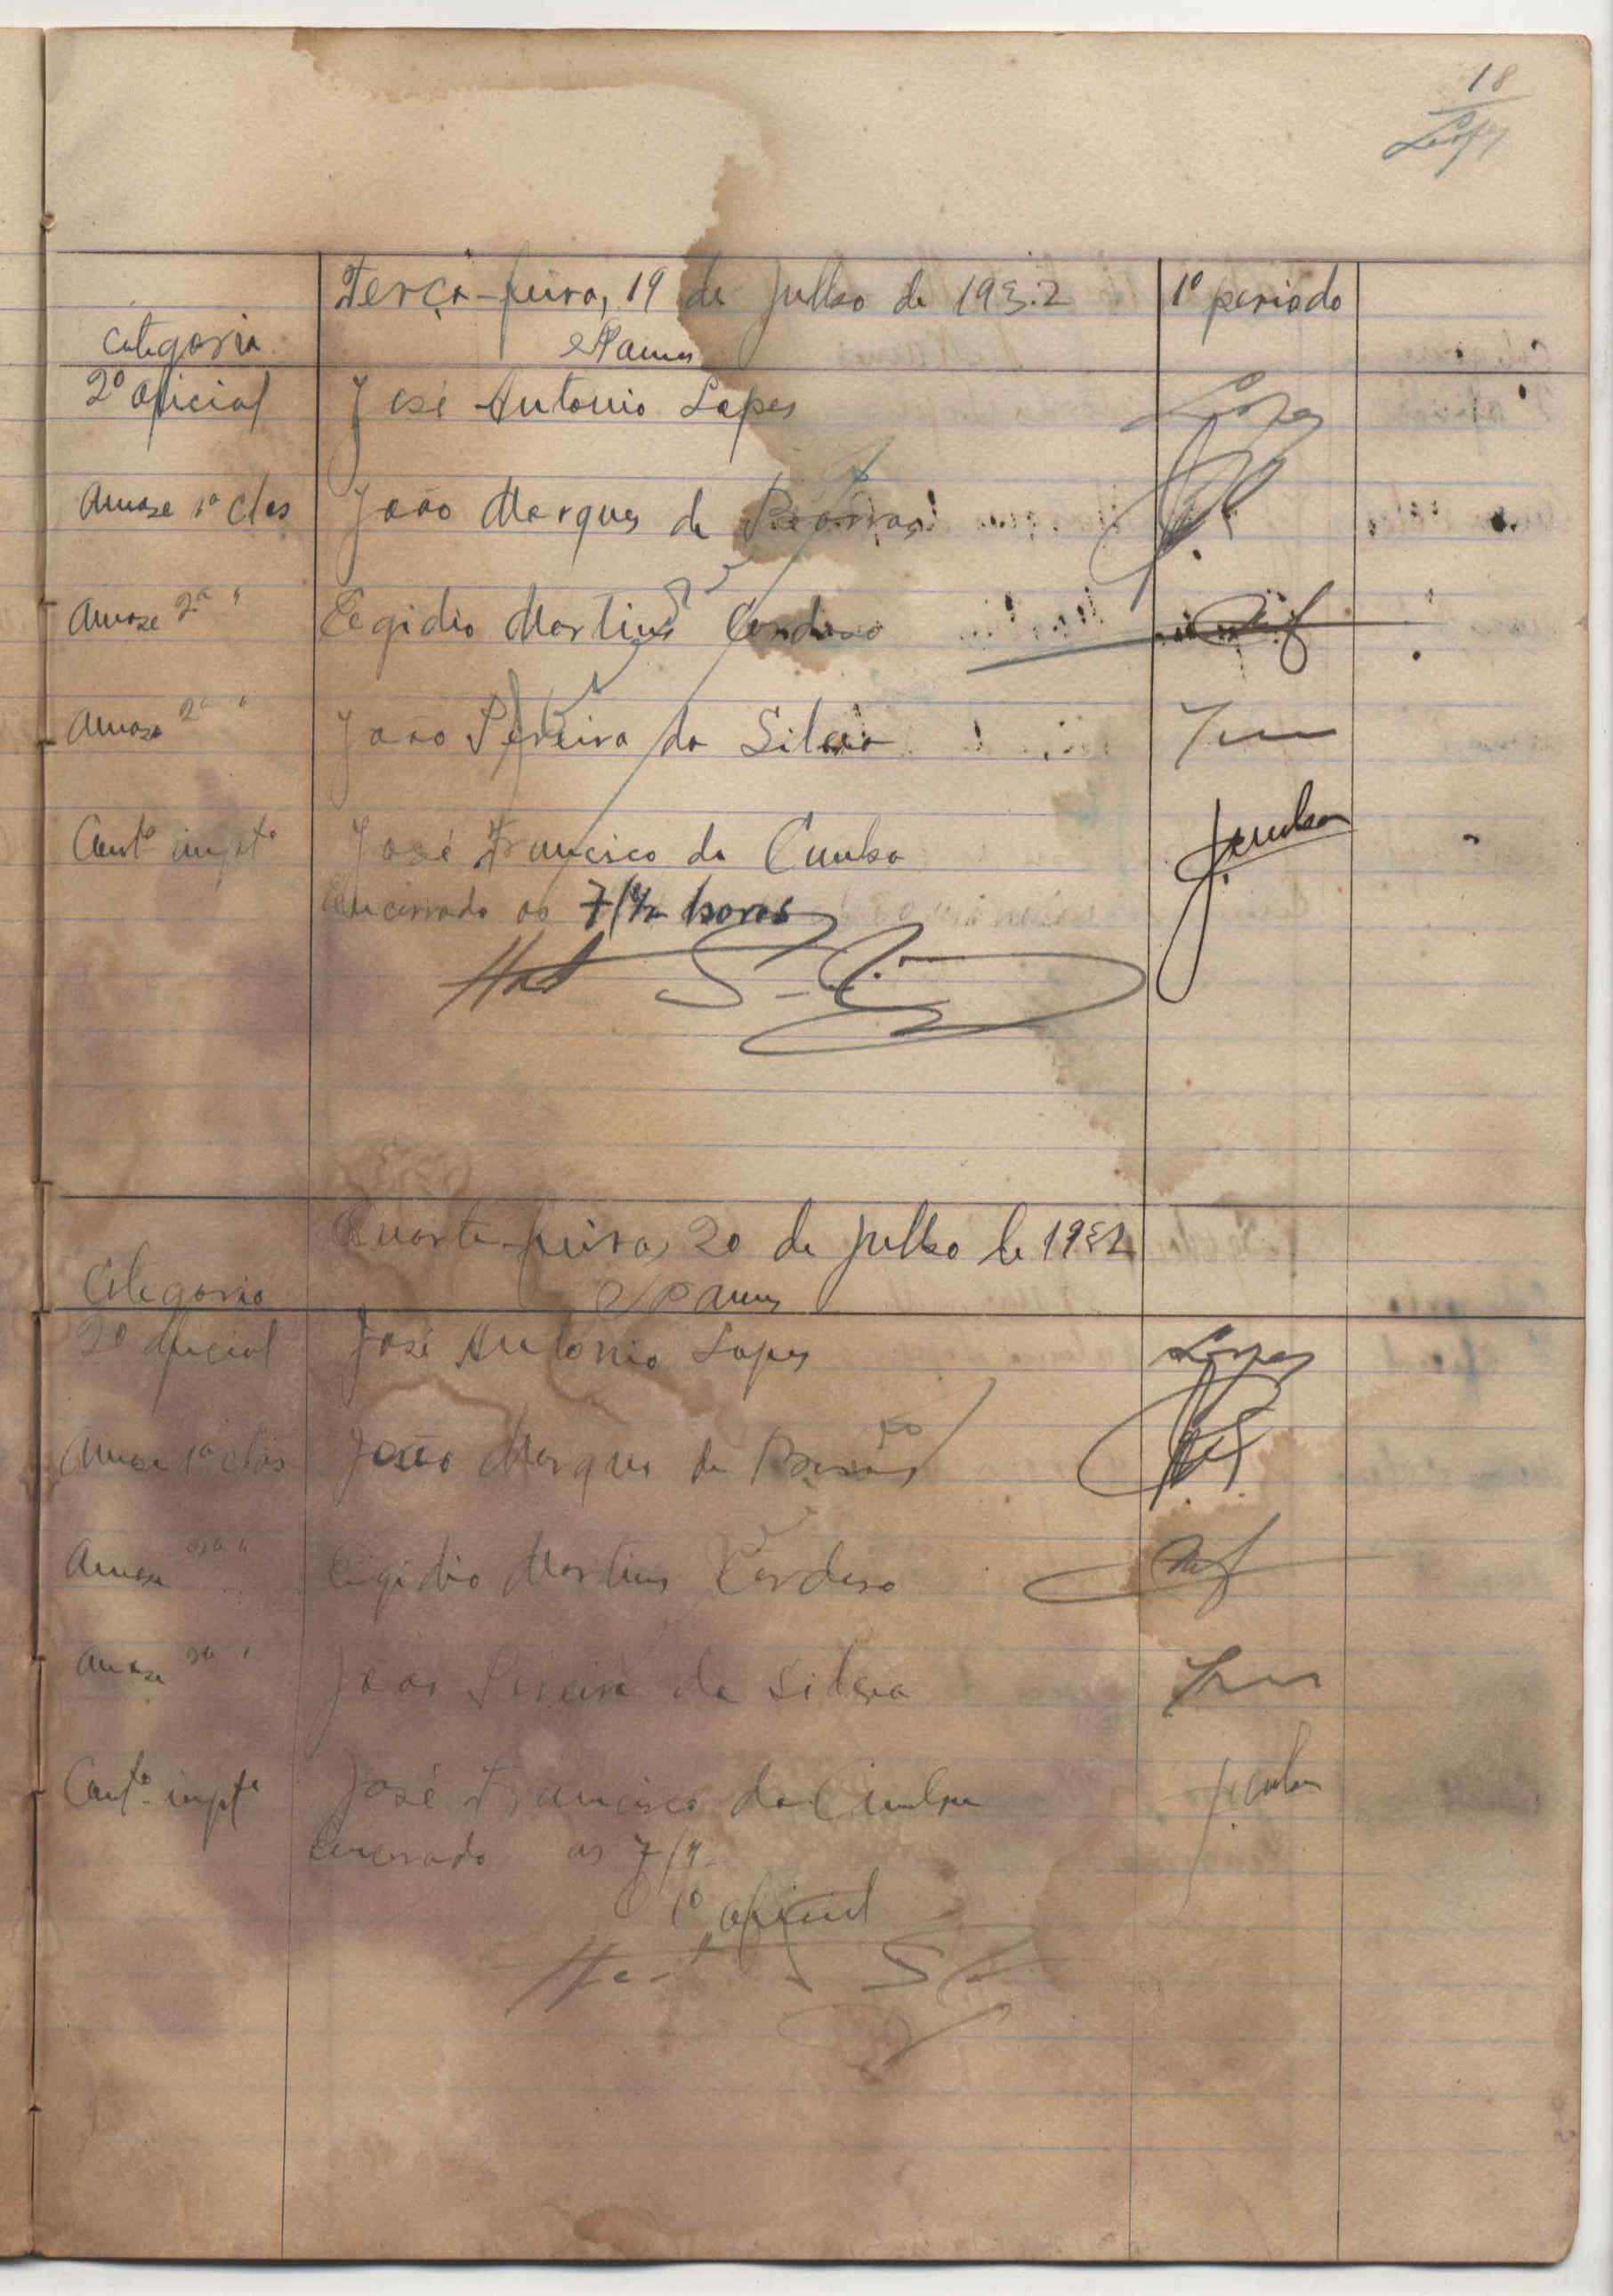 18
Lopes
Terça-feira, 19 de Julho de 1932 1º periodo
Categoria Nomes
2º oficial José Antonio Lopes Lopes
Amaze 1ª clas João Marques de Barros
Amaze 2ª " Eegidio Martins Cardoso
Amaze 2ª " João Pereira da Silva
Contº impte José Francisco da Cunha JCunha
Encerrado as 7/½ horas
Quarta-feira, 20 de Julho de 1932
Categoria Nomes
2º oficial José Antonio Lopes Lopes
Amaze 1ª clas João Marques de Barros
Amaze 2ª " Eigidio Martins Cardoso
Amaze 2ª " João Pereira da Silva
Contº impte José Francisco da Cunha JCunha
Encerrado as 7/½
1º oficial